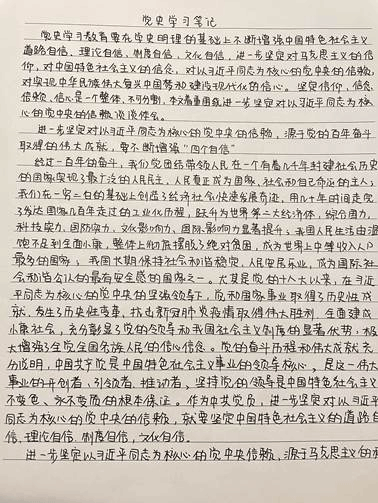 党史学习笔记
党史学习教育要在学史明理的基础上不断增强中国特色社会主义
道路自信、理论自信、制度自信、文化自信，进一步坚定对马克思主义的信
仰，对中国特色社会主义的信念，对以习近平同志为核心的党中央的信赖，
对实现中华民族伟大复兴中国梦和建设现代化的信心。坚定信仰、信念、
信赖、信心是一个整体，不可分割，本文着重围绕进一步坚定对以习近平同志为核
心的党中央的信赖谈谈体会。
进一步坚定对以习近平同志为核心的党中央的信赖，源于党的百年奋斗
取得的伟大成就，要不断增强“四个自信”
经过一百年的奋斗，我们党团结带领人民在一个有着几千年封建社会历史
的国家实现了最广泛的人民民主，人民真正成为国家、社会和自己命运的主人；
我们在一穷二白的基础上创造了经济社会快速发展奇迹，用几十年时间走完
了发达国家几百年走过的工业化历程，跃升为世界第二大经济体，综合国力、
科技实力、国防实力、文化影响力、国际影响力显著提升；我国人民生活由温
饱不足到全面小康，整体上彻底摆脱了绝对贫困，成为世界上中等收入人口
最多的国家；我国长期保持社会和谐稳定，人民安居乐业，成为国际社
会和谐公认的最有安全感的国家之一。尤其是党的十八大以来，在习近
平同志为核心的党中央的坚强领导下，党和国家事业取得了历史性成
就、发生了历史性变革，抗击新冠肺炎疫情取得伟大胜利，全面建成
小康社会，充分彰显了党的领导和我国社会主义制度的显著优势，极
大增强了全党全国各族人民的信心信念。党的奋斗历程和伟大成就充
分说明，中国共产党是中国特色社会主义事业的领导核心，是这一伟大
事业的开创者、引领者、推动者，坚持党的领导是中国特色社会主义
不变色、永不变质的根本保证。作为中共党员，进一步坚定对以习近平
同志为核心的党中央的信赖，就要坚定中国特色社会主义的道路自
信、理论自信、制度自信、文化自信。
进一步坚定以习近平同志为核心的党中央信赖，源于马克思主义的科